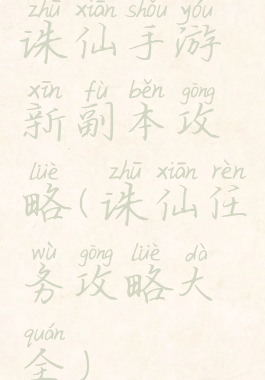 zhū xiān shǒu yóu
诛仙手游
xīn fù běn gōng
新副本攻
lüè zhū xiān rèn
略(诛仙任
wù gōng lüè dà
务攻略大
quán
全)